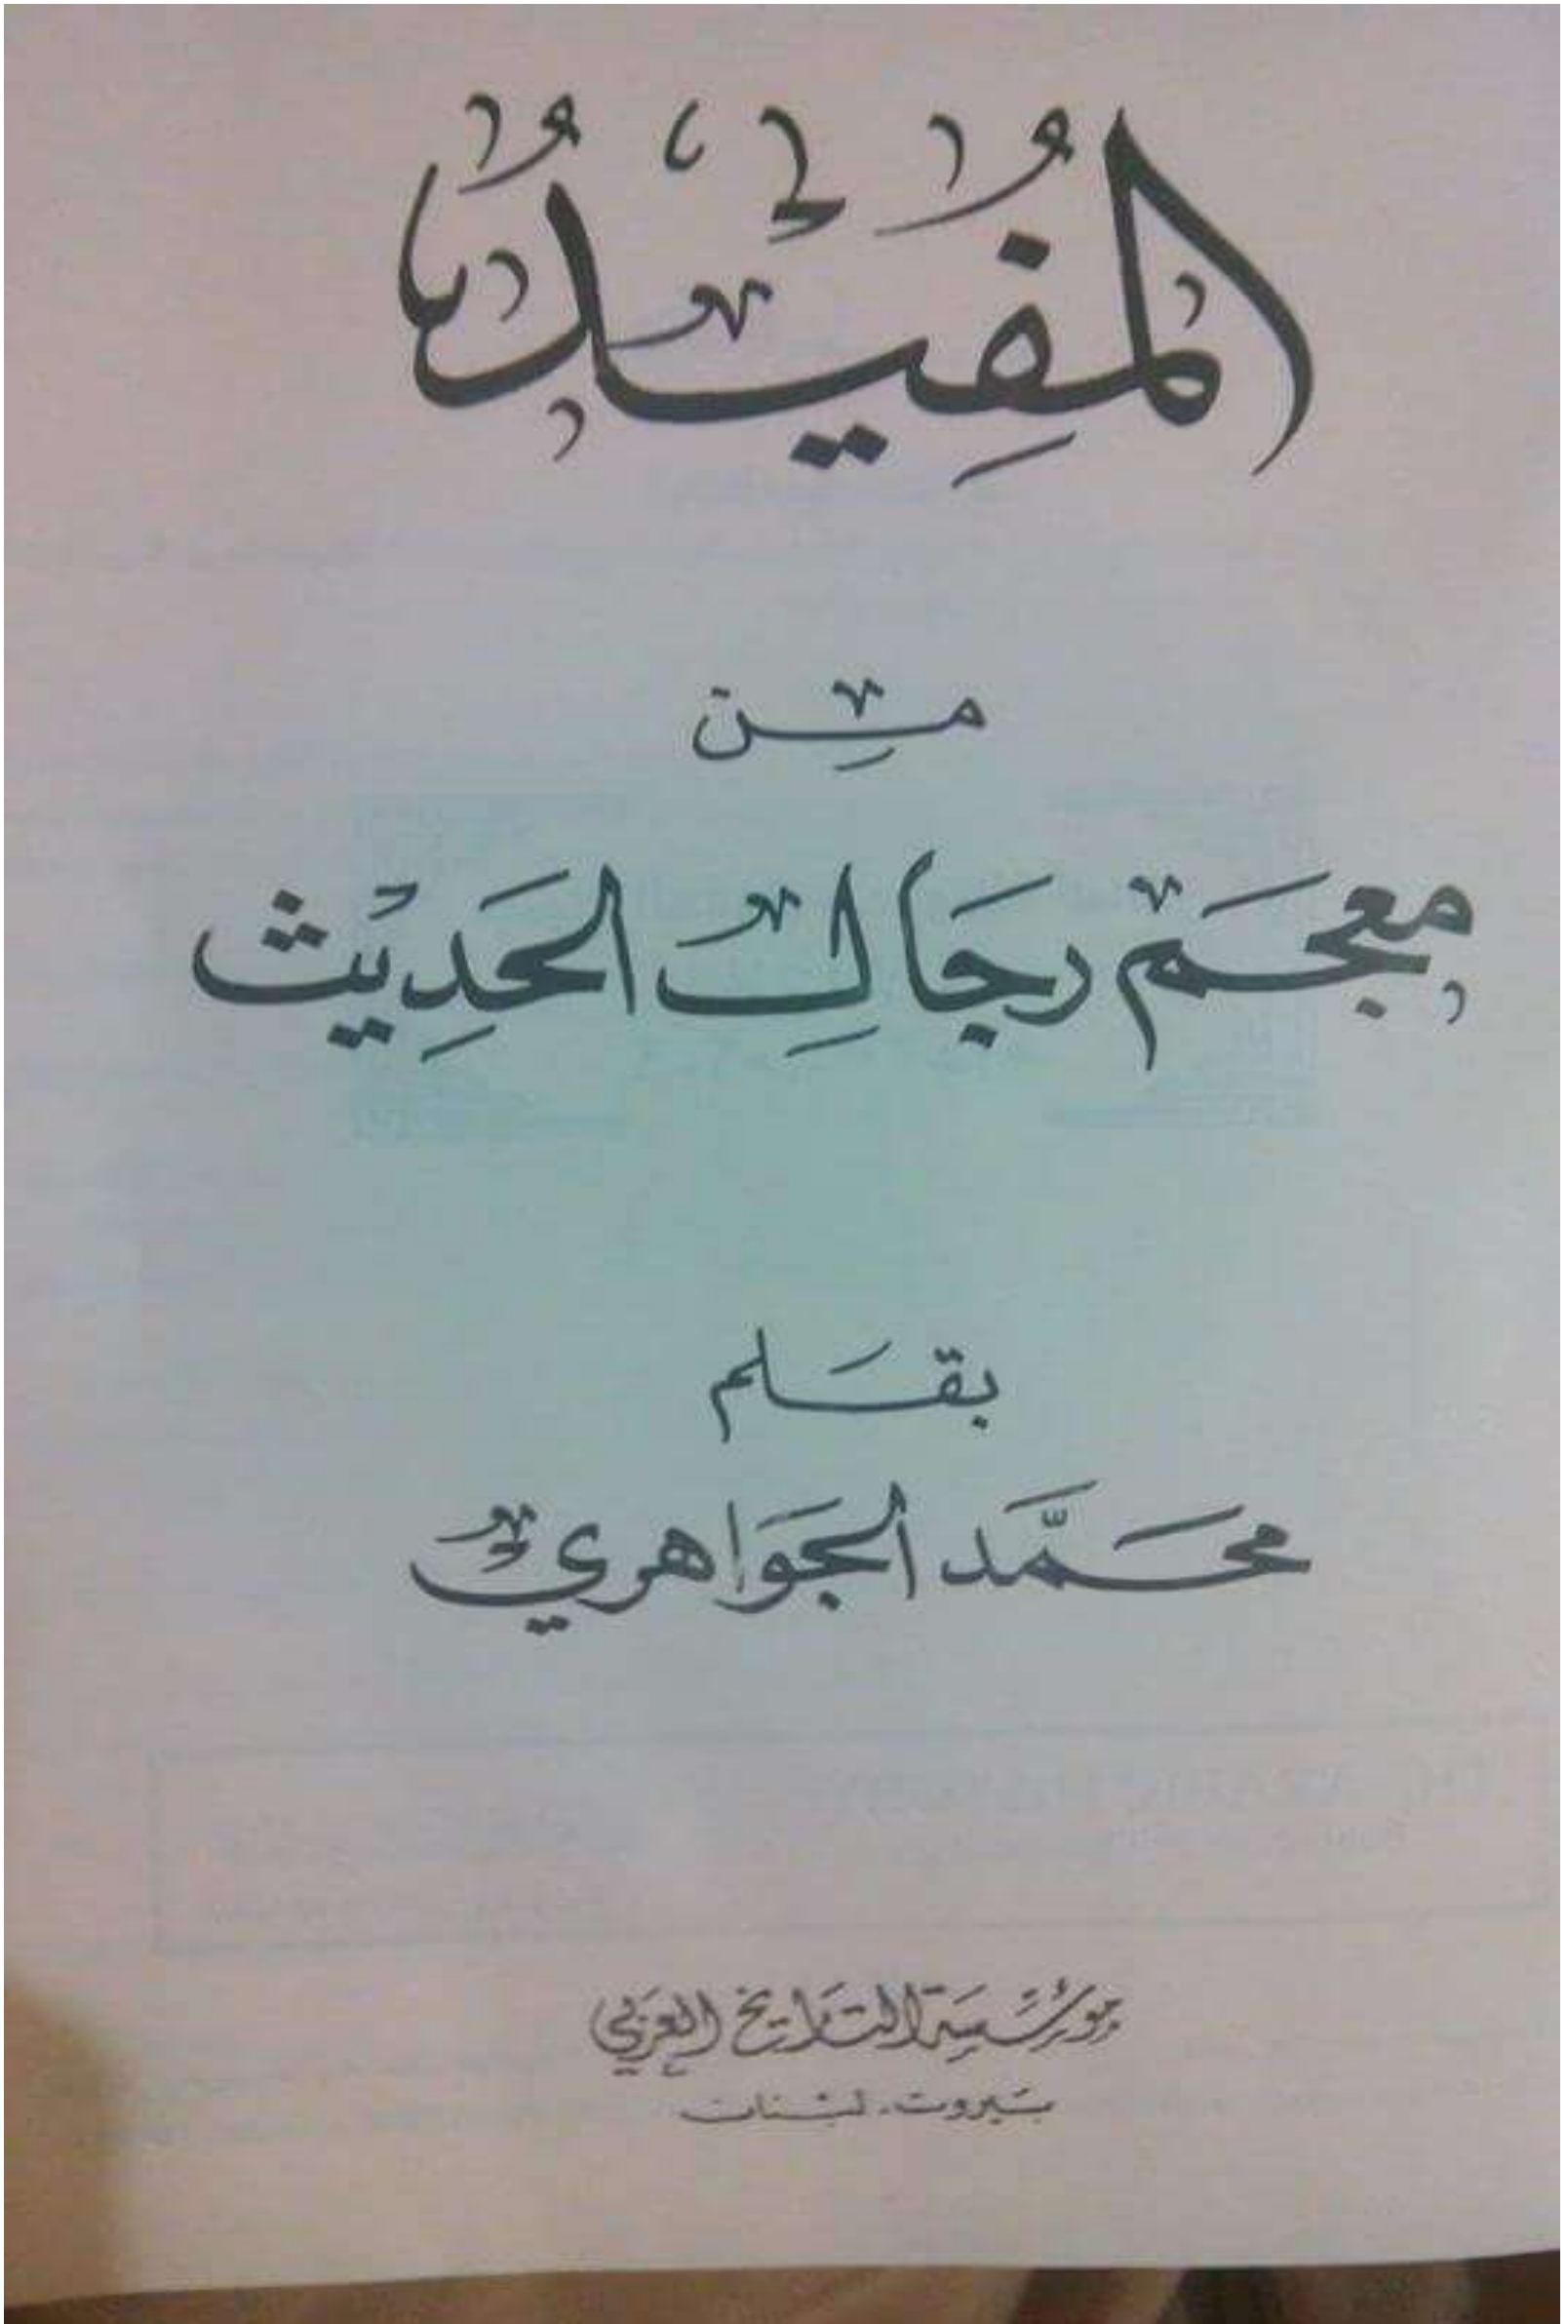 المُفِيدُ
مِن
معجَم رجَالِ الحَدِيث
بقَلم
محَمَّد الجَوَاهري
مؤسَّسَة التَاريخ العَرَبي
بَيروت - لبْنان